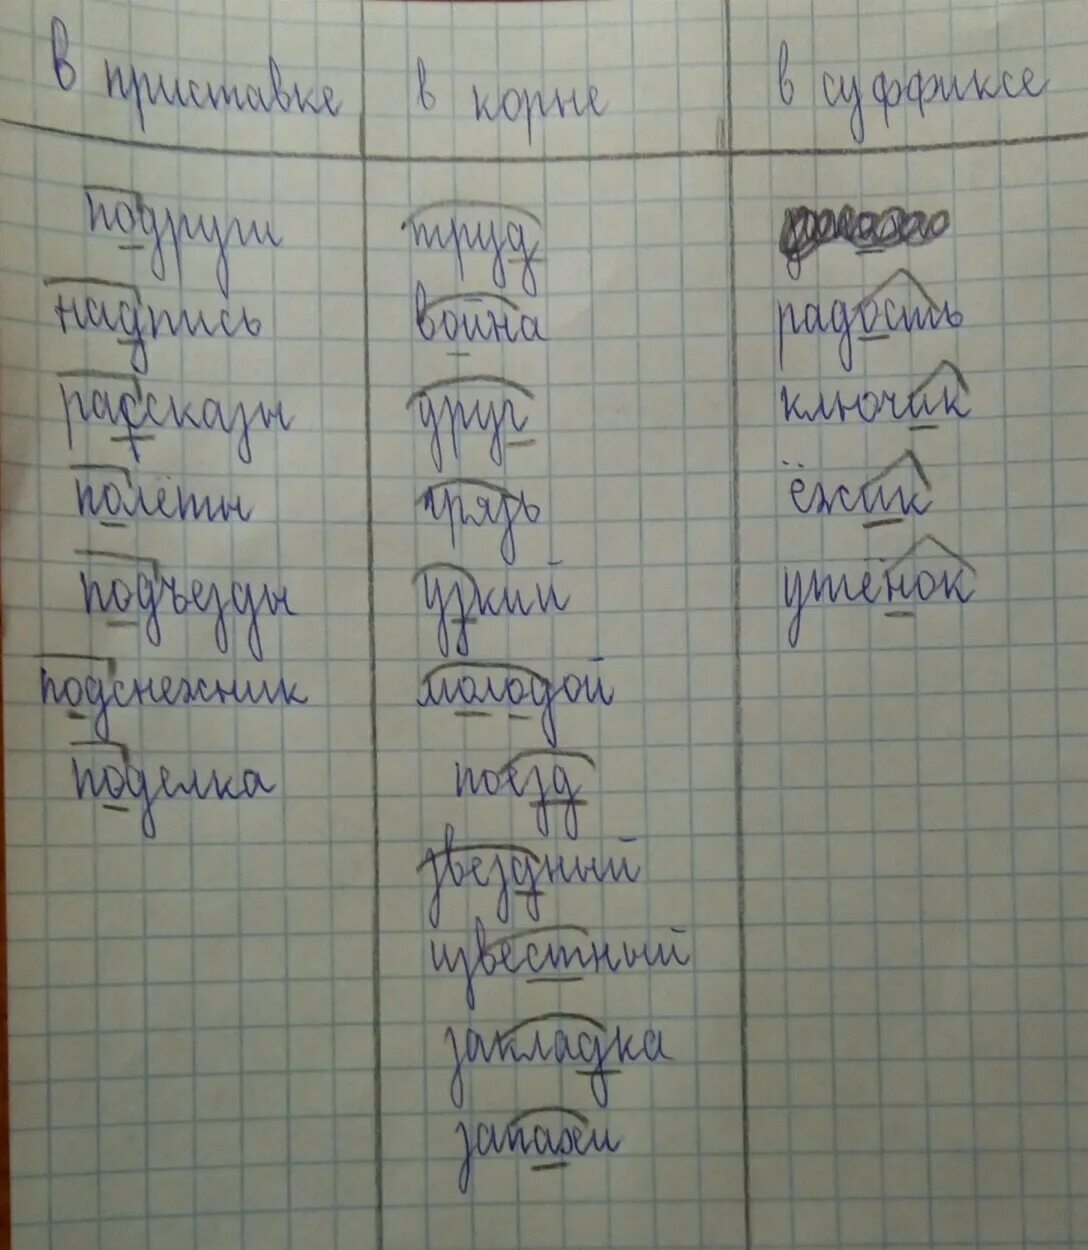 в приставке
в корне
в суффиксе
подруги
надпись
рассказы
полёты
подъезды
подснежник
поделка
труд
война
друг
грязь
узкий
молодой
поезд
звездный
известный
закладка
запахи
радость
ключик
ёжик
утёнок